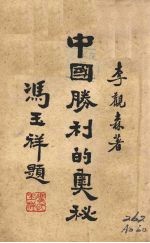 李觀森著
中國勝利的奧秘
馮玉祥題
262